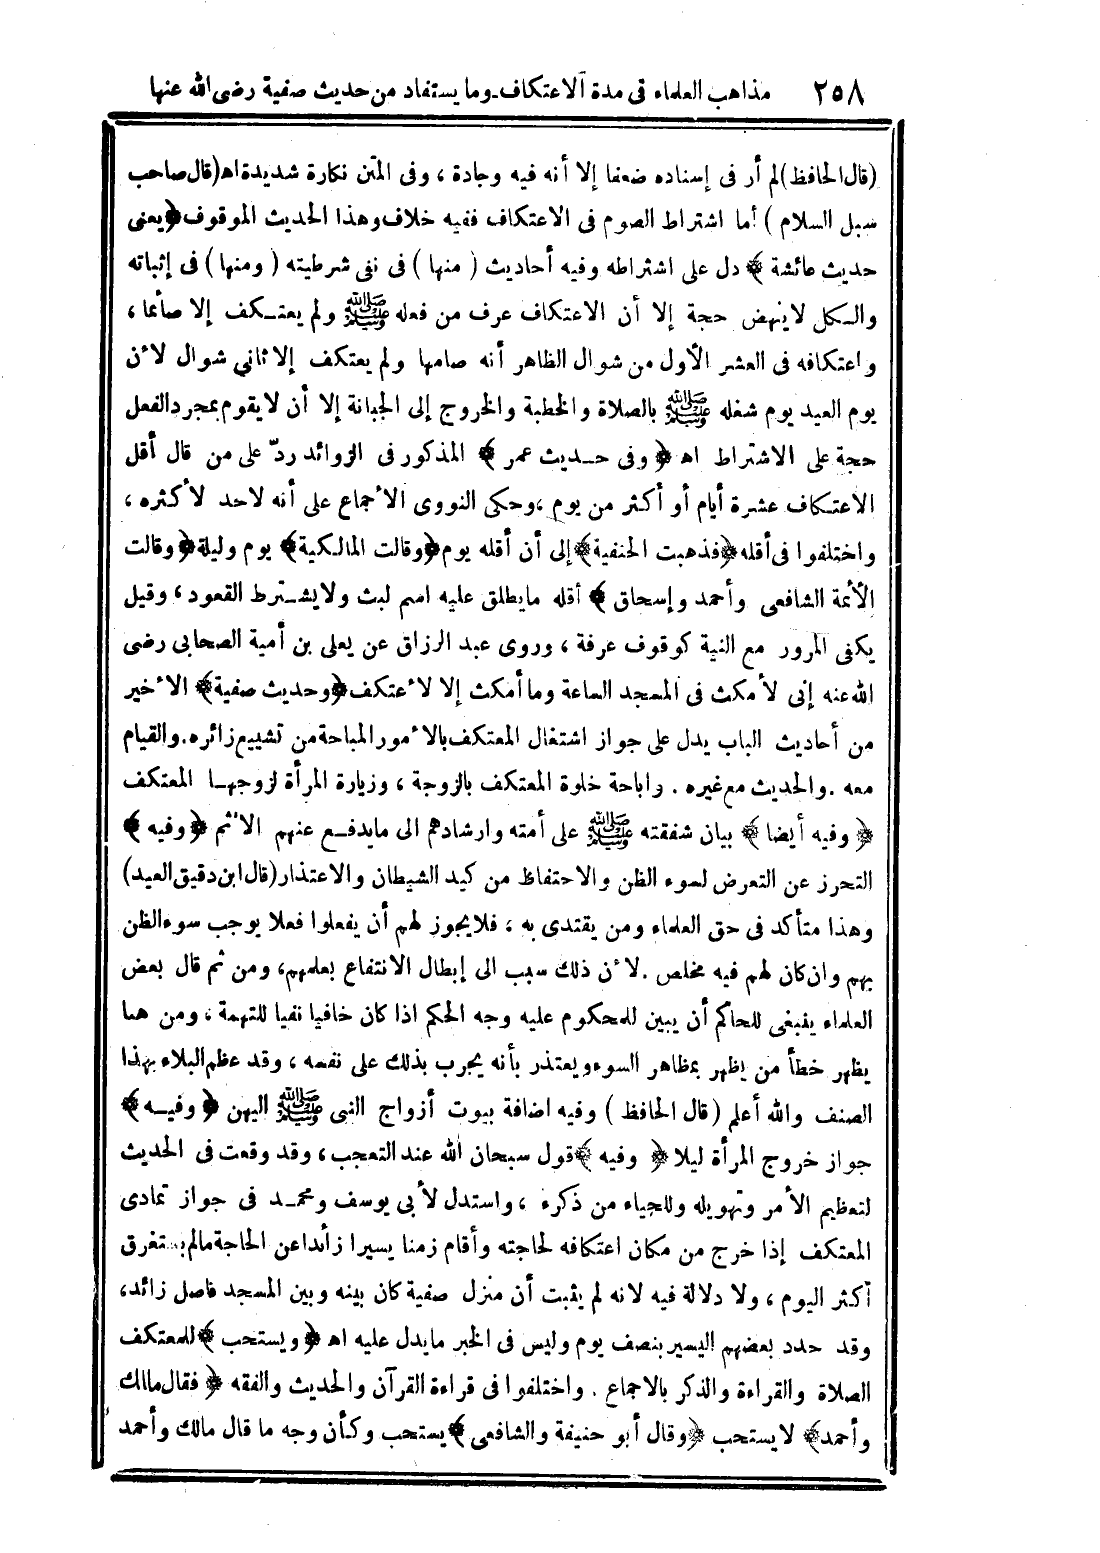 ٢٥٨ مذاهب العلماء فى مدة الاعتكاف ـ وما يستفاد من حديث صفية رضى الله عنها
(قال الحافظ) لم أر فى إسناده ضعفا إلا أنه فيه وجادة ، وفى المتن نكارة شديدة اه (قال صاحب
سبل السلام ) أما اشتراط الصوم فى الاعتكاف ففيه خلاف وهذا الحديث الموقوف ﴿يعنى
حديث عائشة ﴾ دل على اشتراطه وفيه أحاديث ( منها ) فى نفى شرطيته ( ومنها ) فى إثباته
والكل لا ينهض حجة إلا أن الاعتكاف عرف من فعله ﷺ ولم يعتكف إلا صائما ،
واعتكافه فى العشر الأول من شوال الظاهر أنه صامها ولم يعتكف إلا ثاني شوال لأن
يوم العيد يوم شغله ﷺ بالصلاة والخطبة والخروج إلى الجبانة إلا أن لا يقوم بمجرد الفعل
حجة على الاشتراط اه ﴿ وفى حـديث عمر ﴾ المذكور فى الزوائد ردّ على من قال أقل
الاعتكاف عشرة أيام أو أكثر من يوم ، وحكى النووى الأجماع على أنه لاحد لأكثره ،
واختلفوا فى أقله ﴿فذهبت الحنفية﴾ إلى أن أقله يوم ﴿وقالت المالكية﴾ يوم وليلة ﴿وقالت
الأئمة الشافعى وأحمد وإسحاق ﴾ أقله ما يطلق عليه اسم لبث ولا يشترط القعود ، وقيل
يكفى المرور مع النية كوقوف عرفة ، وروى عبد الرزاق عن يعلى بن أمية الصحابى رضى
الله عنه إنى لأمكث فى المسجد الساعة وما أمكث إلا لأعتكف ﴿وحديث صفية﴾ الأخير
من أحاديث الباب يدل على جواز اشتغال المعتكف بالأمور المباحة من تشييع زائره. والقيام
معه . والحديث مع غيره . واباحة خلوة المعتكف بالزوجة ، وزيارة المرأة لزوجهـا المعتكف
﴿ وفيه أيضا ﴾ بيان شفقته ﷺ على أمته وارشادهم الى ما يدفـع عنهم الأثم ﴿ وفيه ﴾
التحرز عن التعرض لسوء الظن والاحتفاظ من كيد الشيطان والاعتذار (قال ابن دقيق العيد)
وهذا متأكد فى حق العلماء ومن يقتدى به ، فلا يجوز لهم أن يفعلوا فعلا يوجب سوء الظن
بهم وان كان لهم فيه مخلص . لأن ذلك سبب الى إبطال الانتفاع بعلمهم، ومن ثم قال بعض
العلماء ينبغى للحاكم أن يبين للمحكوم عليه وجه الحكم اذا كان خافيا نفيا للتهمة ، ومن هنا
يظهر خطأ من يظهر بمظاهر السوء ويعتذر بأنه يجرب بذلك على نفسه ، وقد عظم البلاء بهذا
الصنف والله أعلم ( قال الحافظ ) وفيه اضافة بيوت أزواج النبى ﷺ اليهن ﴿ وفيـه ﴾
جواز خروج المرأة ليلا ﴿ وفيه ﴾ قول سبحان الله عند التعجب ، وقد وقعت فى الحديث
لتعظيم الأمر وتهويله وللحياء من ذكره ، واستدل لأبى يوسف ومحمـد فى جواز تمادى
المعتكف إذا خرج من مكان اعتكافه لحاجته وأقام زمنا يسيرا زائدا عن الحاجة مالم يستغرق
أكثر اليوم ، ولا دلالة فيه لانه لم يثبت أن منزل صفية كان بينه وبين المسجد فاصل زائد،
وقد حدد بعضهم اليسير بنصف يوم وليس فى الخبر ما يدل عليه اه ﴿ ويستحب ﴾ للمعتكف
الصلاة والقراءة والذكر بالاجماع . واختلفوا فى قراءة القرآن والحديث والفقه ﴿ فقال مالك
وأحمد﴾ لا يستحب ﴿وقال أبو حنيفة والشافعى ﴾ يستحب وكأن وجه ما قال مالك وأحمد